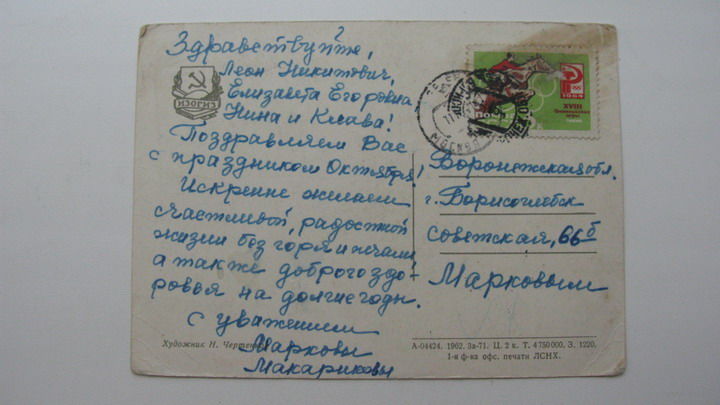 Здравствуйте,
Леон Никитович,
Елизавета Егоровна
Нина и Клава!
Поздравляем Вас
с праздником Октября!
Искренне желаем
счастливой, радостной
жизни без горя и печали,
а также доброго здо-
ровья на долгие годы.
С уважением
Марковы
Макариковы
ИЗОГИЗ
Художник Н.
МОСКВА
ПОЧТА
1964
XVIII
Воронежская обл.
г. Борисоглебск
Советская, 66б
Марковым
А-04424. 1962. Зв-71. Ц. 2 к. Т. 4 750 000. З. 1220.
1-я ф-ка офс. печати ЛСНХ.